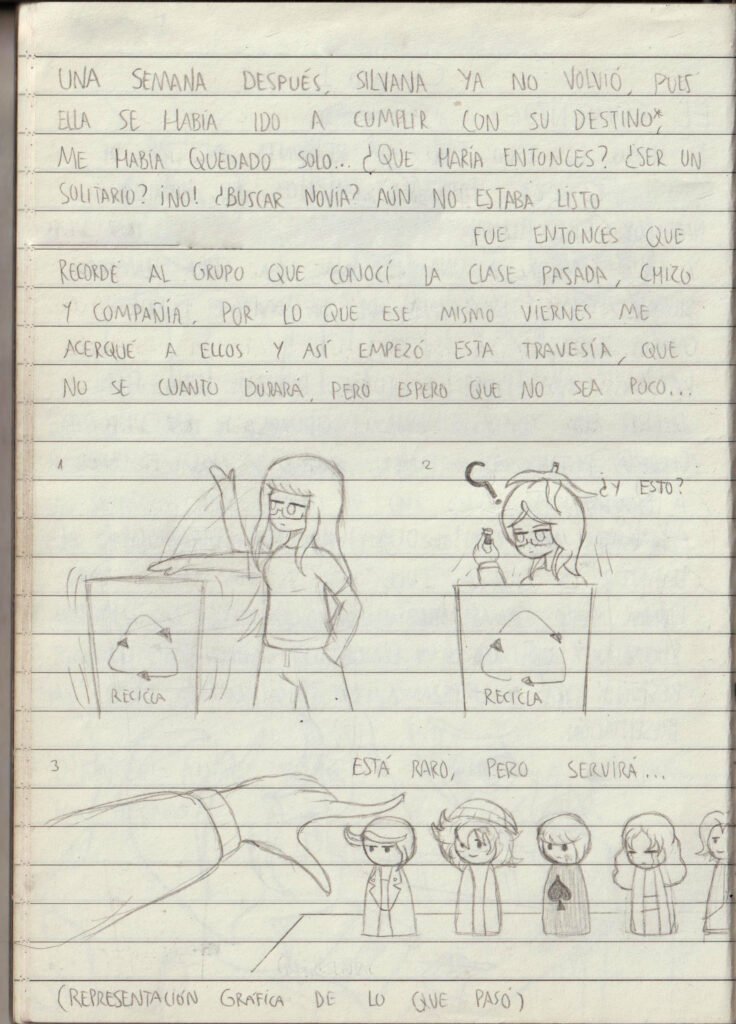 UNA SEMANA DESPUÉS, SILVANA YA NO VOLVIÓ, PUES
ELLA SE HABÍA IDO A CUMPLIR CON SU DESTINO*,
ME HABÍA QUEDADO SOLO... ¿QUE HARÍA ENTONCES? ¿SER UN
SOLITARIO? ¡NO! ¿BUSCAR NOVIA? AÚN NO ESTABA LISTO
FUE ENTONCES QUE
RECORDE AL GRUPO QUE CONOCÍ LA CLASE PASADA, CHIZO
Y COMPAÑÍA, POR LO QUE ESE MISMO VIERNES ME
ACERQUÉ A ELLOS Y ASÍ EMPEZÓ ESTA TRAVESÍA, QUE
NO SE CUANTO DURARÁ, PERO ESPERO QUE NO SEA POCO...
1
2
¿Y ESTO?
RECICLA
RECICLA
3
ESTÁ RARO, PERO SERVIRÁ...
(REPRESENTACIÓN GRAFICA DE LO QUE PASÓ)